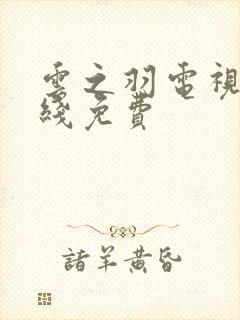 雲之羽電視
綫免費
諸羊黄昏